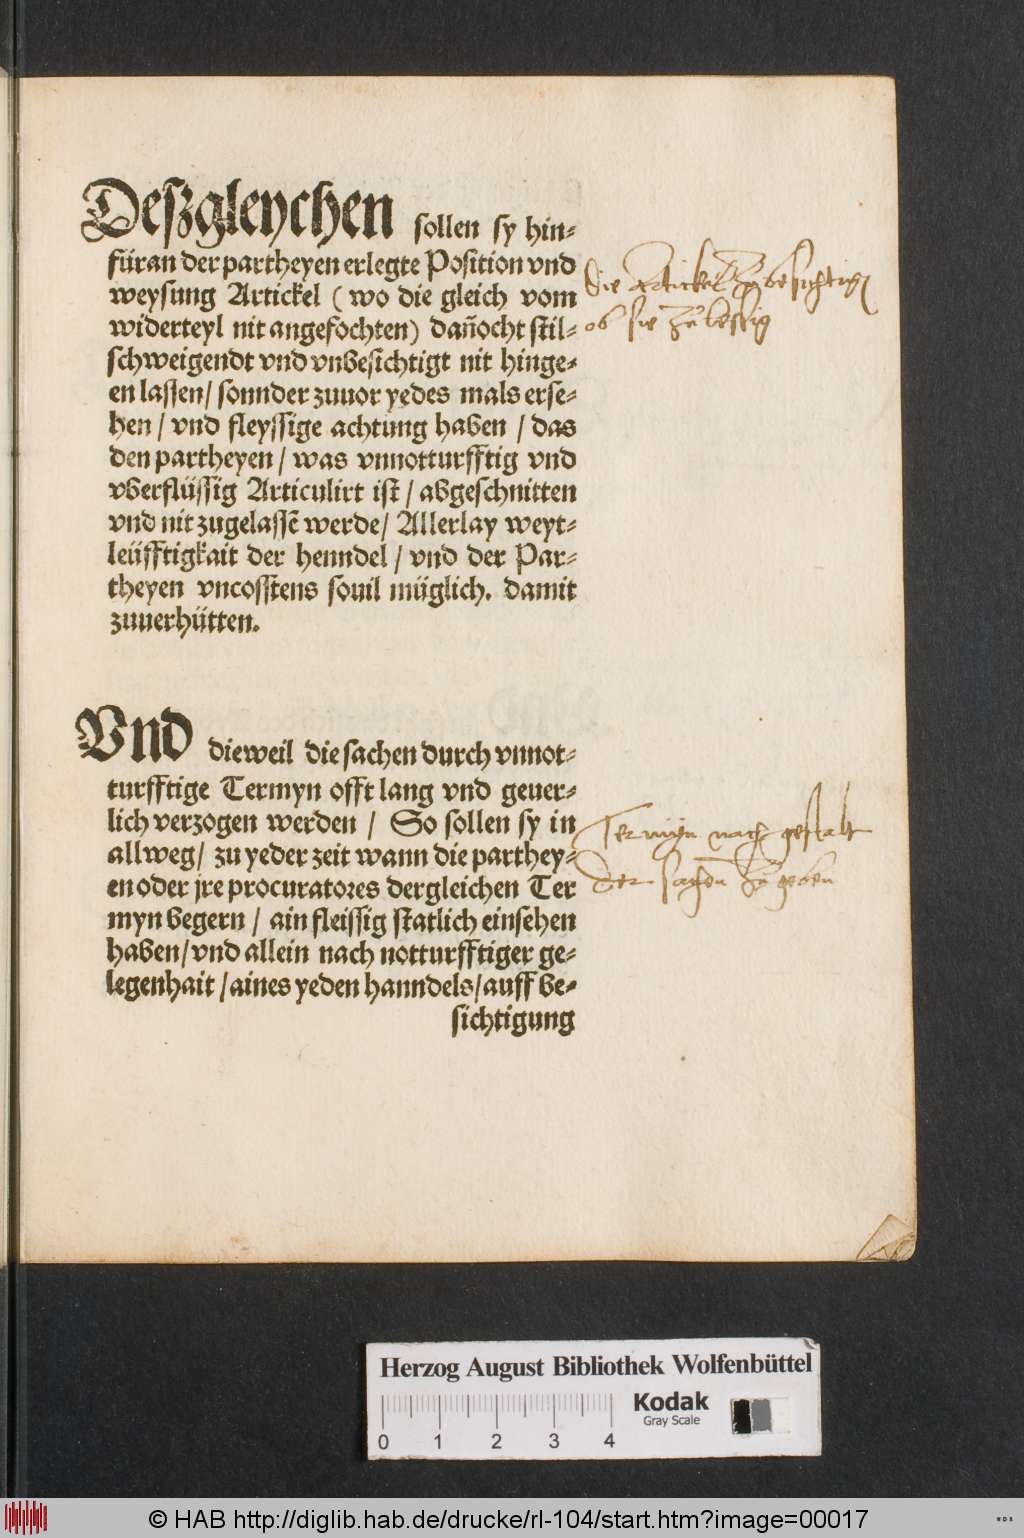 Deszgleychen sollen sy hin-
füran der partheyen erlegte Position vnd
weysung Artickel (wo die gleich vom
widerteyl nit angefochten) dañocht stil-
schweigendt vnd vnbesichtigt nit hinge-
en lassen / sonnder zuuor yedes mals erse-
hen / vnd fleyssige achtung haben / das
den partheyen / was vnnotturfftig vnd
vberflüssig Articulirt ist / abgeschnitten
vnd nit zugelassē werde / Allerlay weyt-
leüfftigkait der henndel / vnd der Par-
theyen vncosstens souil müglich. damit
zuuerhütten.
die Artickel zu besichtigen
ob sie zulessig
Vnd dieweil die sachen durch vnnot-
turfftige Termyn offt lang vnd geuer-
lich verzogen werden / So sollen sy in
allweg / zu yeder zeit wann die parthey-
en oder jre procuratores dergleichen Ter
myn begern / ain fleissig statlich einsehen
haben / vnd allein nach notturfftiger ge-
legenhait / aines yeden hanndels / auff be-
sichtigung
Termyn nach gestalt
der sachen zu geben
Herzog August Bibliothek Wolfenbüttel
Kodak
Gray Scale
0 1 2 3 4
© HAB http://diglib.hab.de/drucke/rl-104/start.htm?image=00017